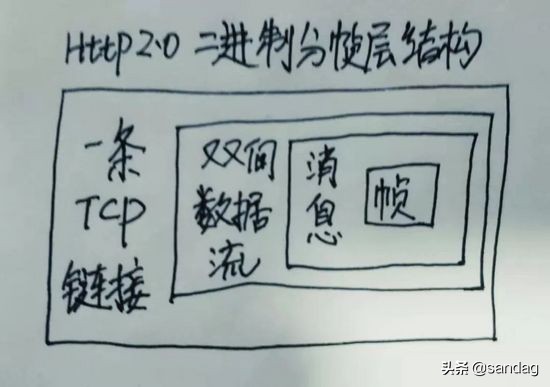 Http2.0 二进制分帧层结构
一条
TCP
链接
双向
数据
流
消
息
帧
头条 @sandag